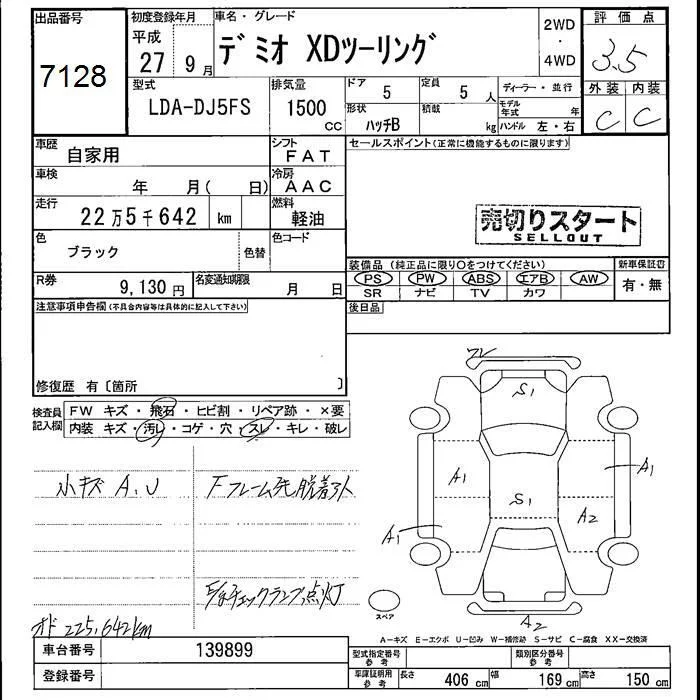 出品番号
7128
初度登録年月
平成
27 9月
車名・グレード
デミオ XDツーリング
2WD
・
4WD
評価点
3.5
外装 内装
C C
型式
LDA-DJ5FS
排気量
1500
CC
ドア
5
定員
5 人
形状
ハッチB
積載
kg
ディーラー・並行
モデル年式 年
ハンドル 左・右
車歴
自家用
シフト
FAT
車検
年 月( 日)
冷房
AAC
走行
22万5千642 km
燃料
軽油
色
ブラック
色替
色コード
R券
9,130円
名変通知期限
月 日
セールスポイント(正常に機能するものに限ります)
売切りスタート
SELLOUT
装備品 (純正品に限り○をつけてください)
PS PW ABS エアB AW
SR ナビ TV カワ
新車保証書
有・無
後日品
注意事項申告欄(不具合内容等は具体的に記入して下さい)
修復歴 有〔箇所 〕
検査員
記入欄
FW キズ・飛石・ヒビ割・リペア跡・×要
内装 キズ・汚レ・コゲ・穴・スレ・キレ・破レ
小キズ A.U
Fフレーム先脱着
チェックランプ点灯
オド 225,642km
S1
A1
S1
A1
A2
A1
A2
スペア
A-キズ E-エクボ U-凹み W-補修跡 S-サビ C-腐食 XX-交換済
車台番号
139899
登録番号
型式指定番号
参考
類別区分番号
参考
車庫証明用
参考
長さ 406 cm 幅 169 cm 高さ 150 cm